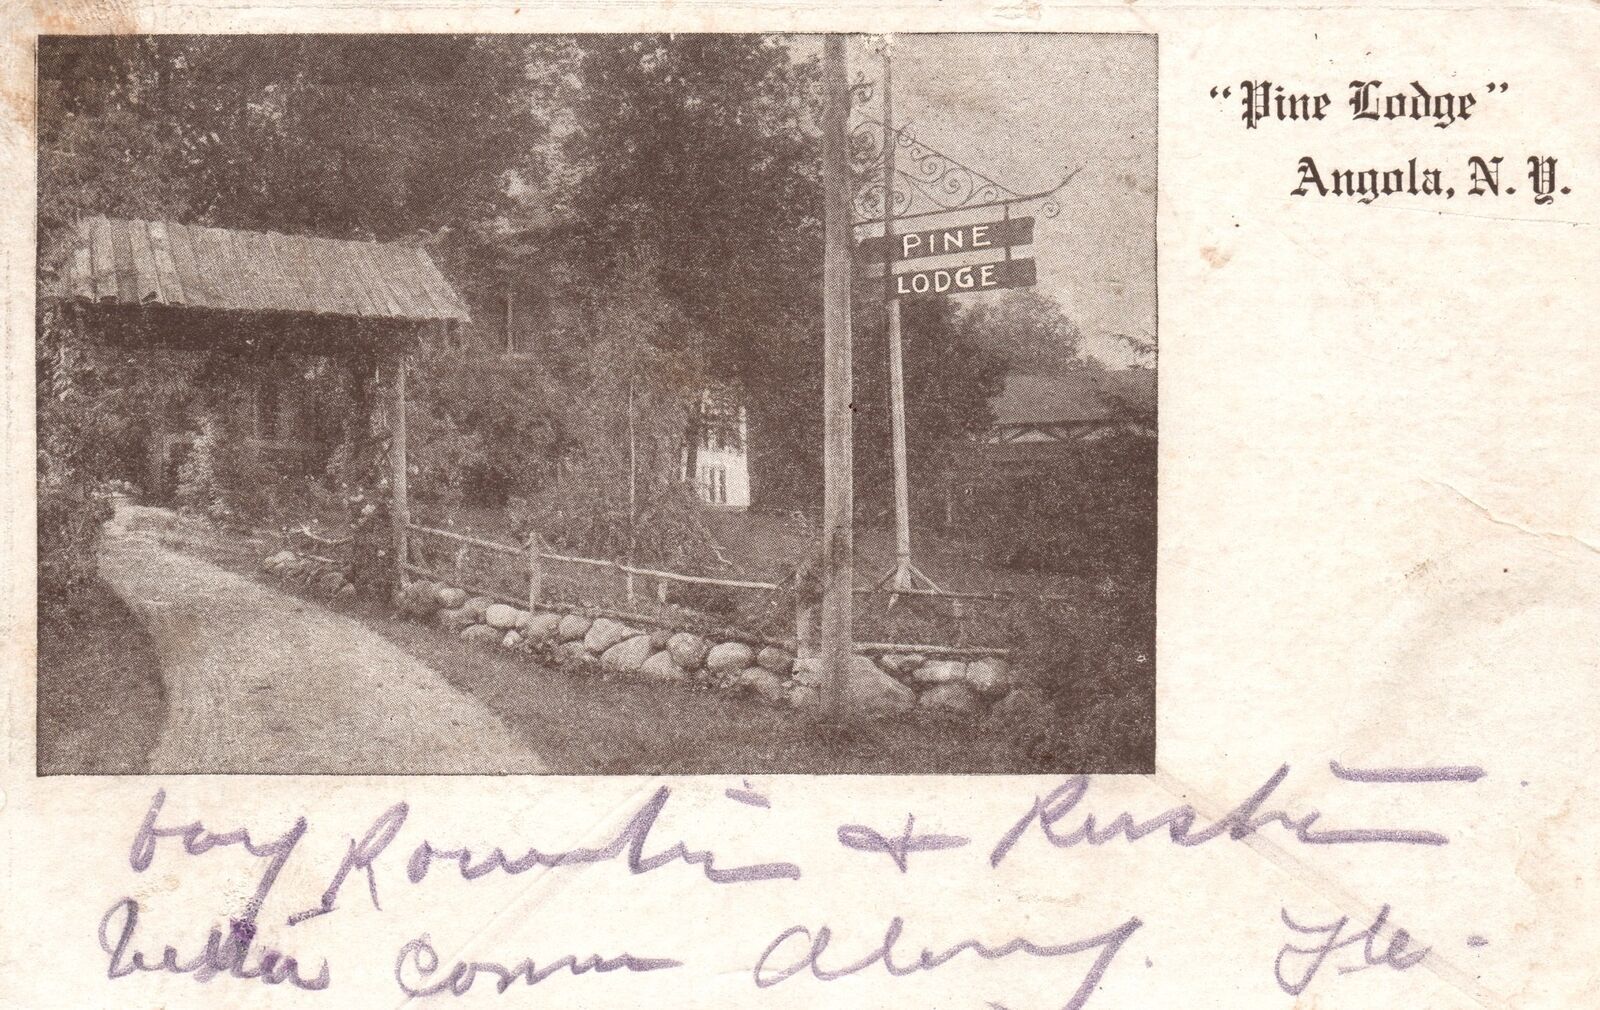 "Pine Lodge"
Angola, N. Y.
PINE
LODGE
boy Romantic & Rustic
better come along.